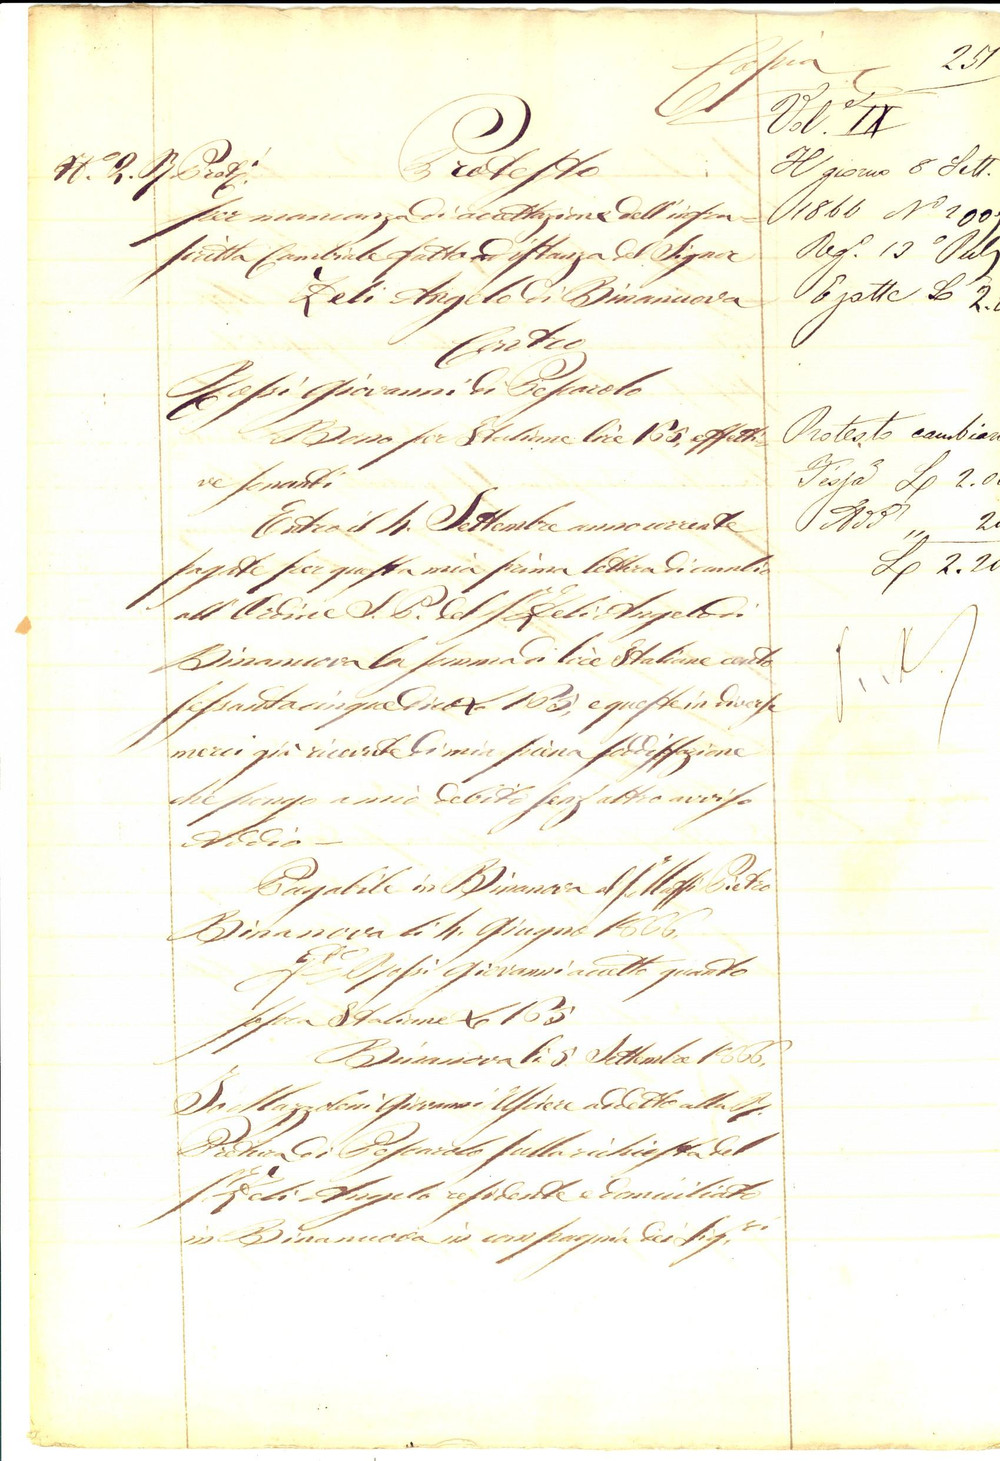 Copia
251
Vol. IX
N.° 2. R. Prot.
Protesto
per mancanza di accettazione dell'infra-
scritta Cambiale fatto ad istanza del Signor
Zeli Angelo di Binanuova
Contro
Rossi Giovanni di Pescarolo
Buono per Italiane lire 165, effetti-
ve sonanti
Entro il 4. Settembre anno corrente
pagate per questa mia prima lettera di cambio
all'Ordine S. P. del Sr. Zeli Angelo di
Binanuova la somma di lire Italiane cento
sessantacinque dico L. 165, e queste in diverse
merci già ricevute di mia piena soddisfazione
che pongo a mio debito senz'altro avviso
Addio —
Pagabile in Binanova al Sr. Maffi Pietro
Binanova li 4. Giugno 1866.
Rossi Giovanni accetto quanto
sopra Italiane L. 165
Binanova li 5. Settembre 1866.
Io Mazzoleni Giovanni Usciere addetto alla R.
Pretura di Pescarolo sulla richiesta del
Sr. Zeli Angelo residente e domiciliato
in Binanuova in compagnia dei Sig.ri
Il giorno 8 Sett.
1866 N° 200
Reg. 13
Esatte L 2.
Protesto cambiar
Tassa L 2.00
„ 20
L 2.20